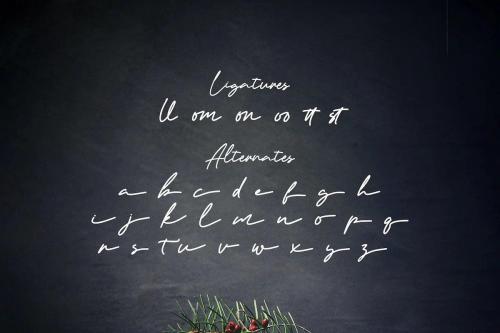 Ligatures
ll om on oo tt st
Alternates
a b c d e f g h
i j k l m n o p q
r s t u v w x y z